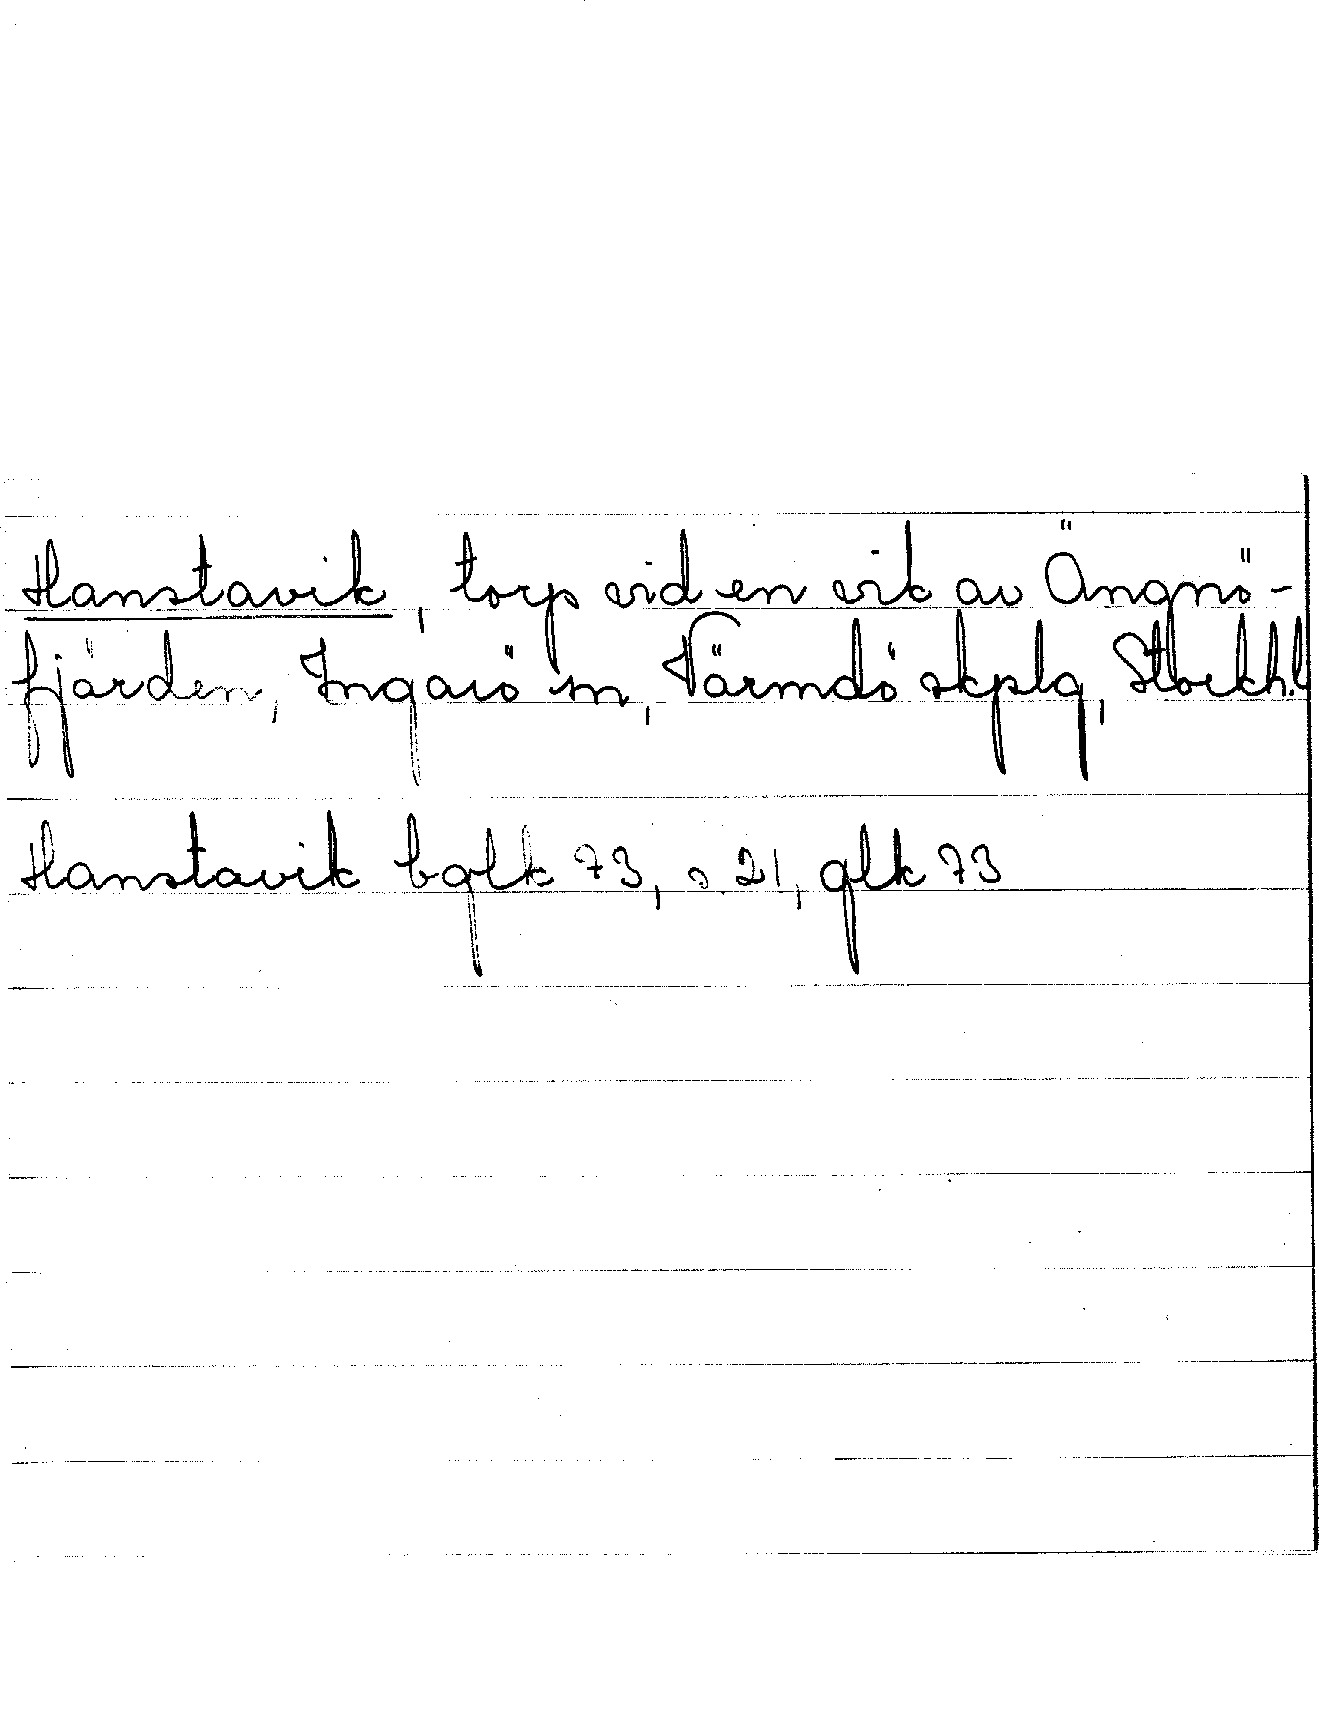 Hanstavik, torp vid en vik av Ängnö-
fjärden, Ingarö sn, Värmdö skplg, Stockh.l
Hanstavik bglk 73, s. 21, glk 73